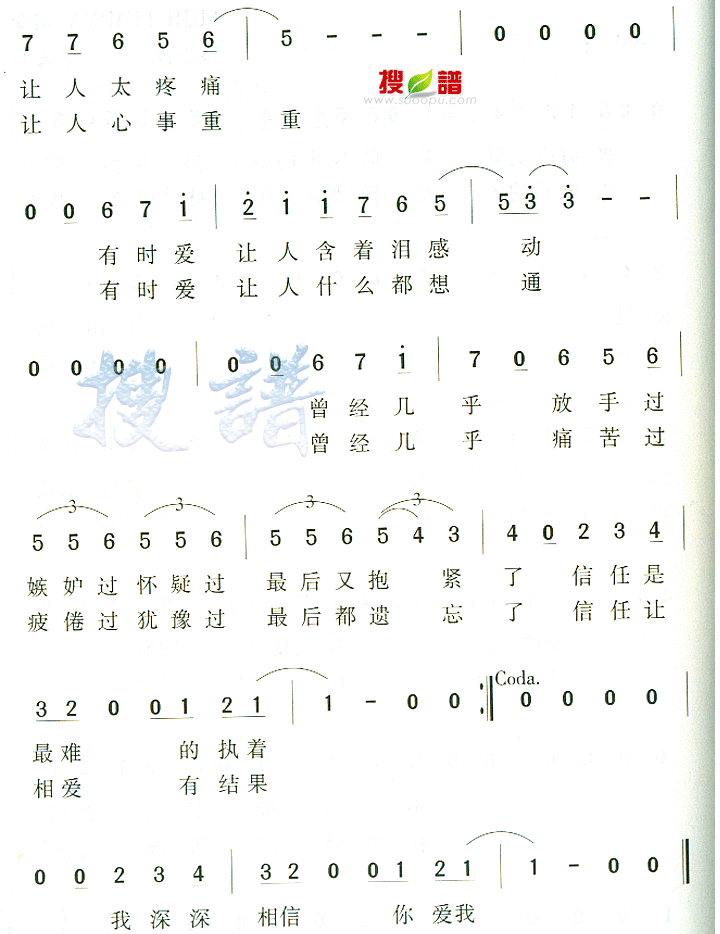 7 7 6 5 6 | 5 - - - | 0 0 0 0 |
搜譜
www.sooopu.com
让人太疼痛
让人心事重 重
0 0 6 7 1 | 2 1 1 7 6 5 | 5 3 3 - - |
有时爱 让人含着泪感 动
有时爱 让人什么都想 通
0 0 0 0 | 0 0 6 7 1 | 7 0 6 5 6 |
搜譜
曾经几 乎 放手过
曾经几 乎 痛苦过
3 3 3 3
5 5 6 5 5 6 | 5 5 6 5 4 3 | 4 0 2 3 4 |
嫉妒过怀疑过 最后又抱 紧 了 信任是
疲倦过犹豫过 最后都遗 忘 了 信任让
Coda.
3 2 0 0 1 2 1 | 1 - 0 0 :|| 0 0 0 0 |
最难 的执着
相爱 有结果
0 0 2 3 4 | 3 2 0 0 1 2 1 | 1 - 0 0 ||
我深深 相信 你 爱我